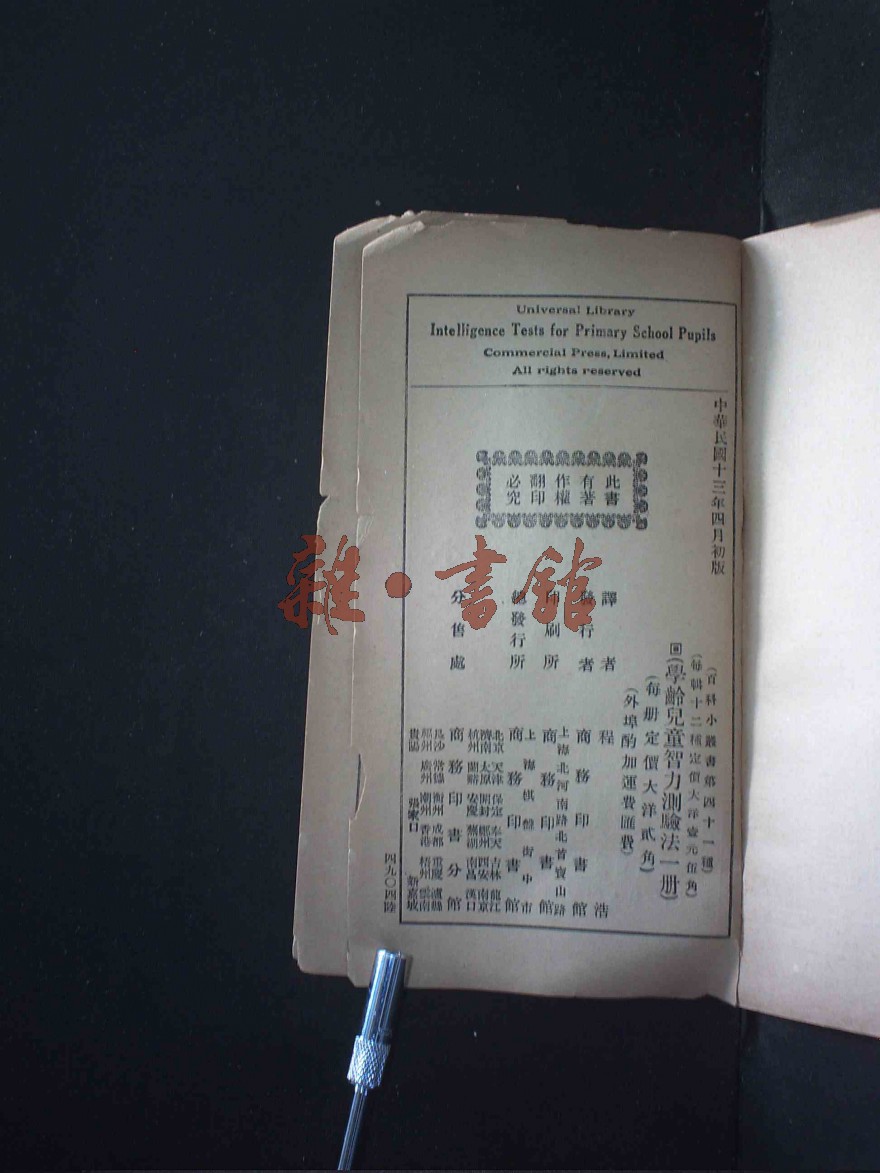 Universal Library
Intelligence Tests for Primary School Pupils
Commercial Press, Limited
All rights reserved
中華民國十三年四月初版
此書
有著
作權
翻印
必究
(百科小叢書第四十一種)
(每輯十二種定價大洋壹元伍角)
(學齡兒童智力測驗法一册)
(每册定價大洋貳角)
(外埠酌加運費匯費)
譯者 程浩
發行者 商務印書館
印刷所 上海北河南路北首寶山路 商務印書館
總發行所 上海棋盤街中市 商務印書館
分售處 商務印書分館
北京 天津 保定 奉天 吉林 龍江
濟南 太原 開封 鄭州 西安 南京
杭州 蘭谿 安慶 蕪湖 南昌 漢口
長沙 常德 衡州 成都 重慶 瀘縣
福州 廣州 潮州 香港 梧州 雲南
貴陽 張家口 新嘉坡
四九〇四陸
雜·書館